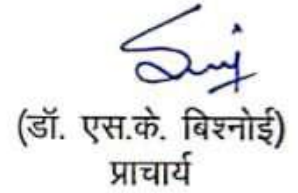 (डॉ. एस.के. बिश्नोई)
प्राचार्य